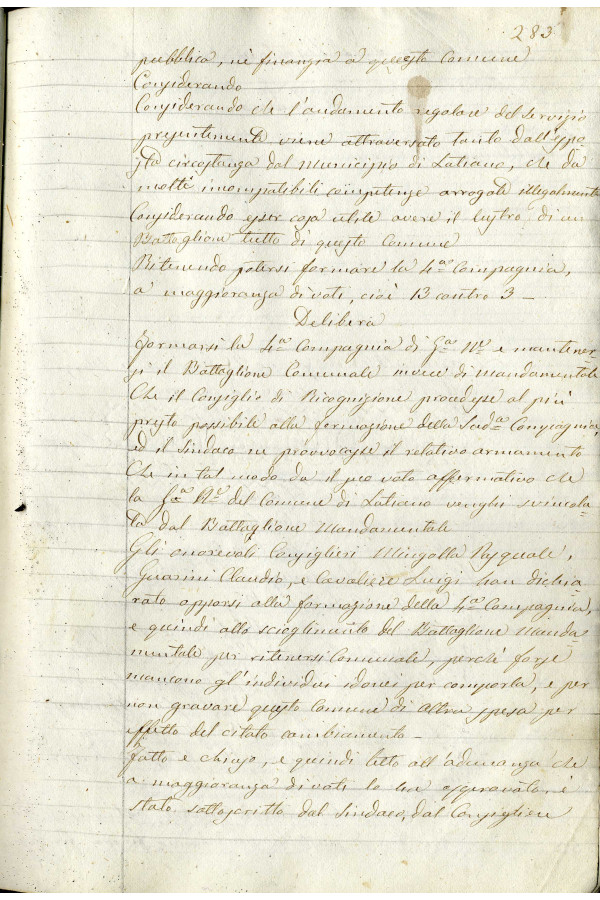 283
pubblica, nè finanzia a questo Comune
Considerando
Considerando che l'andamento regolare del servizio
presentemente viene attraversato tanto dall'espo-
sta circostanza dal Municipio di Latiano, che da
molte incompatibili competenze arrogate illegalmente
Considerando esser cosa utile avere il lustro di un
Battaglione tutto di questo Comune
Ritenendo potersi formare la 4ª Compagnia,
a maggioranza di voti, cioè 13 contro 3 -
Delibera
Formarsi la 4ª Compagnia di Gª Nˡᵉ e mantener-
si il Battaglione Comunale invece di Mandamentale
Che il Consiglio di Ricognizione procedesse al più
presto possibile alla formazione della Sudª Compagnia,
ed il Sindaco ne provvocasse il relativo armamento
Che in tal modo da il suo voto affermativo che
la Gª Nˡᵉ del Comune di Latiano venghi svincola-
ta dal Battaglione Mandamentale
Gli onorevoli Consiglieri Mingolla Pasquale,
Guarini Claudio, e Cavaliere Luigi han dichia-
rato opporsi alla formazione della 4ª Compagnia,
e quindi allo scioglimento del Battaglione Manda-
mentale per ritenersi Comunale, perchè forse
mancono gl'individui idonei per comporla, e per
non gravare questo Comune di altra spesa per
effetto del citato cambiamento -
Fatto e chiuso, e quindi letto all'adunanza che
a maggioranza di voti lo ha approvato, è
stato sottoscritto dal Sindaco, dal Consigliere